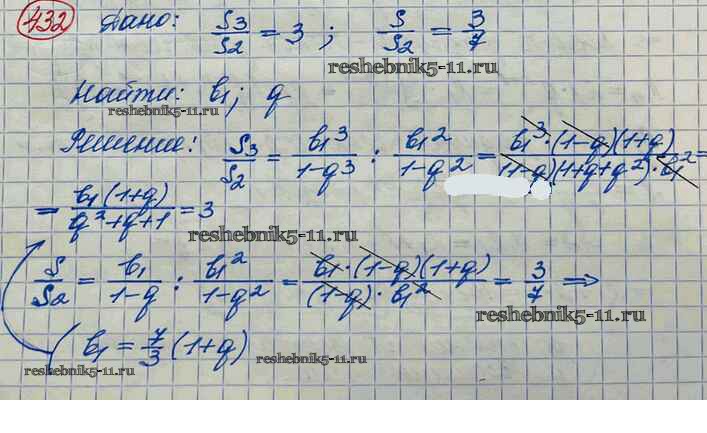 432 Дано: S3/S2 = 3 ; S/S2 = 3/7
reshebnik5-11.ru
Найти: b₁; q
reshebnik5-11.ru
Решение: S3/S2 = b₁³/1-q³ : b₁²/1-q² = b₁³·(1-q)(1+q)/(1-q)(1+q+q²)·b₁² =
= b₁(1+q)/q²+q+1 = 3
reshebnik5-11.ru
S/S2 = b₁/1-q : b₁²/1-q² = b₁·(1-q)(1+q)/(1-q)·b₁² = 3/7 ⇒
reshebnik5-11.ru
b₁ = 7/3 (1+q)
reshebnik5-11.ru
reshebnik5-11.ru